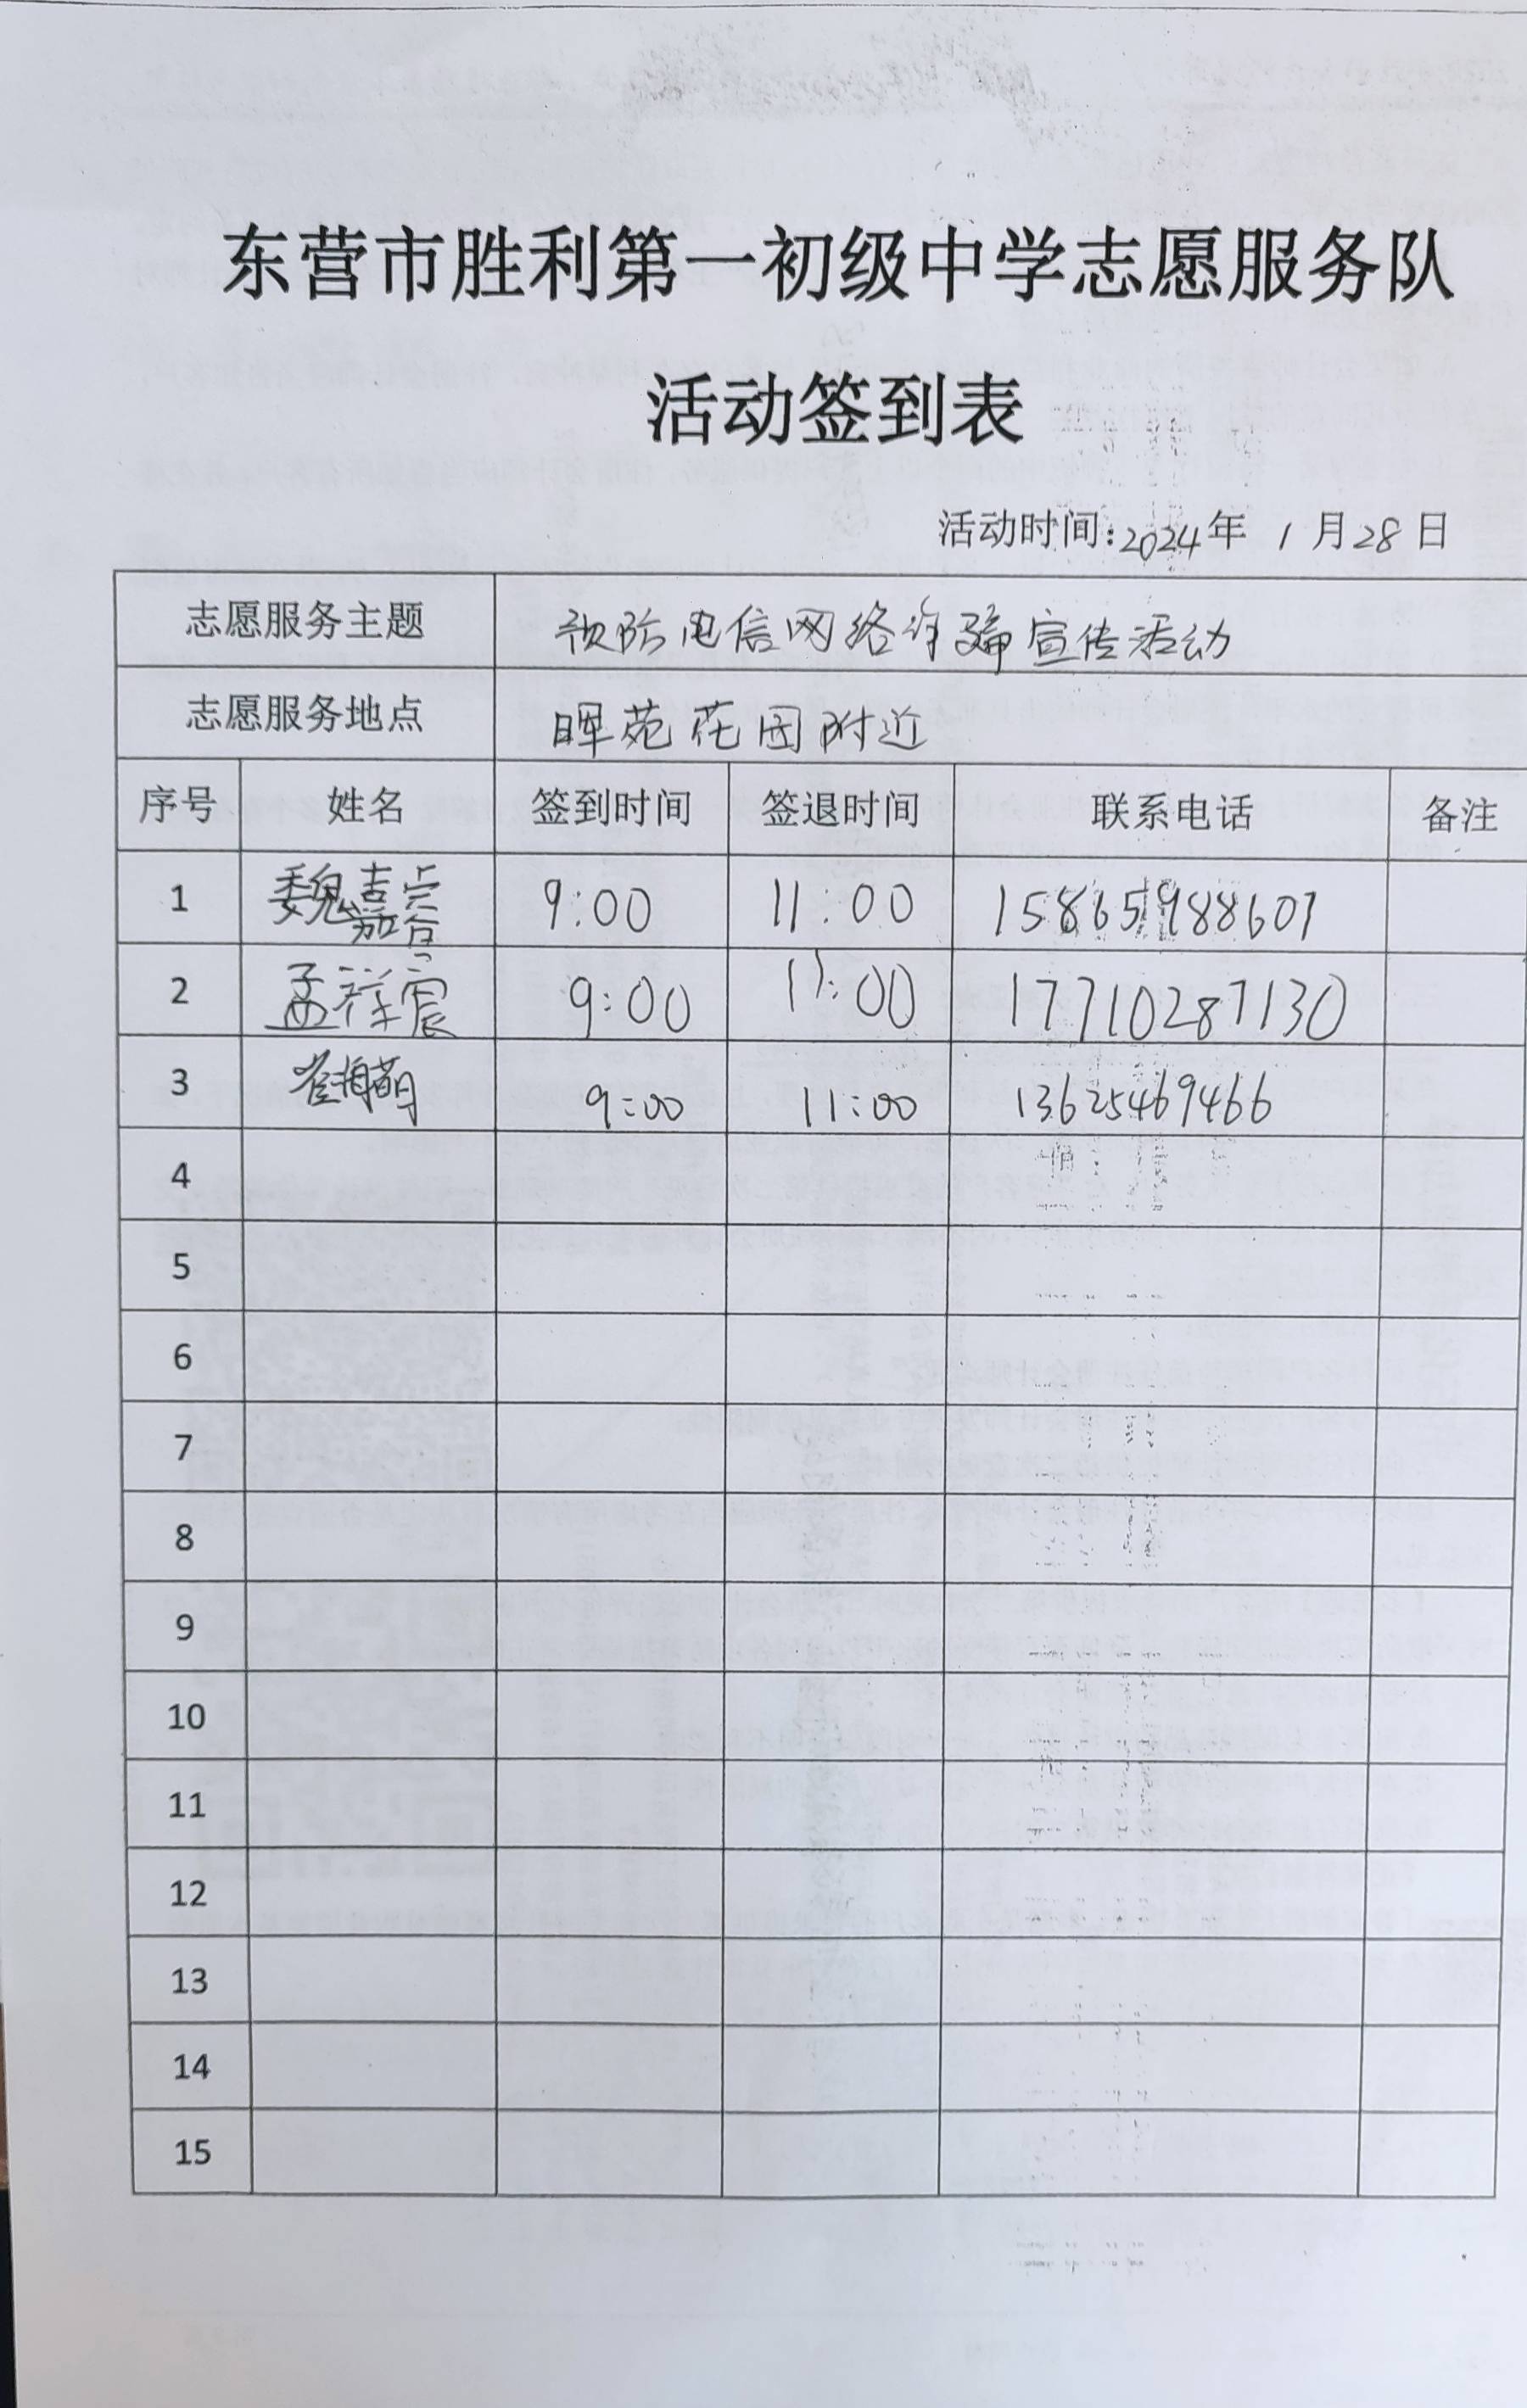 东营市胜利第一初级中学志愿服务队
活动签到表
活动时间:2024年 1 月28日
志愿服务主题 预防电信网络诈骗宣传活动
志愿服务地点 晖苑花园附近
序号 姓名 签到时间 签退时间 联系电话 备注
1 魏嘉睿 9:00 11:00 15865988607
2 孟祥震 9:00 11:00 17710287130
3 崔海萌 9:00 11:00 13625469466
4
5
6
7
8
9
10
11
12
13
14
15